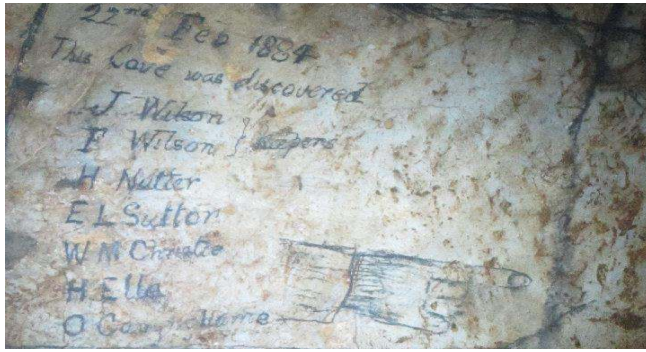 22nd Feb 1884
This Cave was discovered
J Wilson
F Wilson } Keepers
H Nutter
E L Suttor
W M Christie
H Ella
O